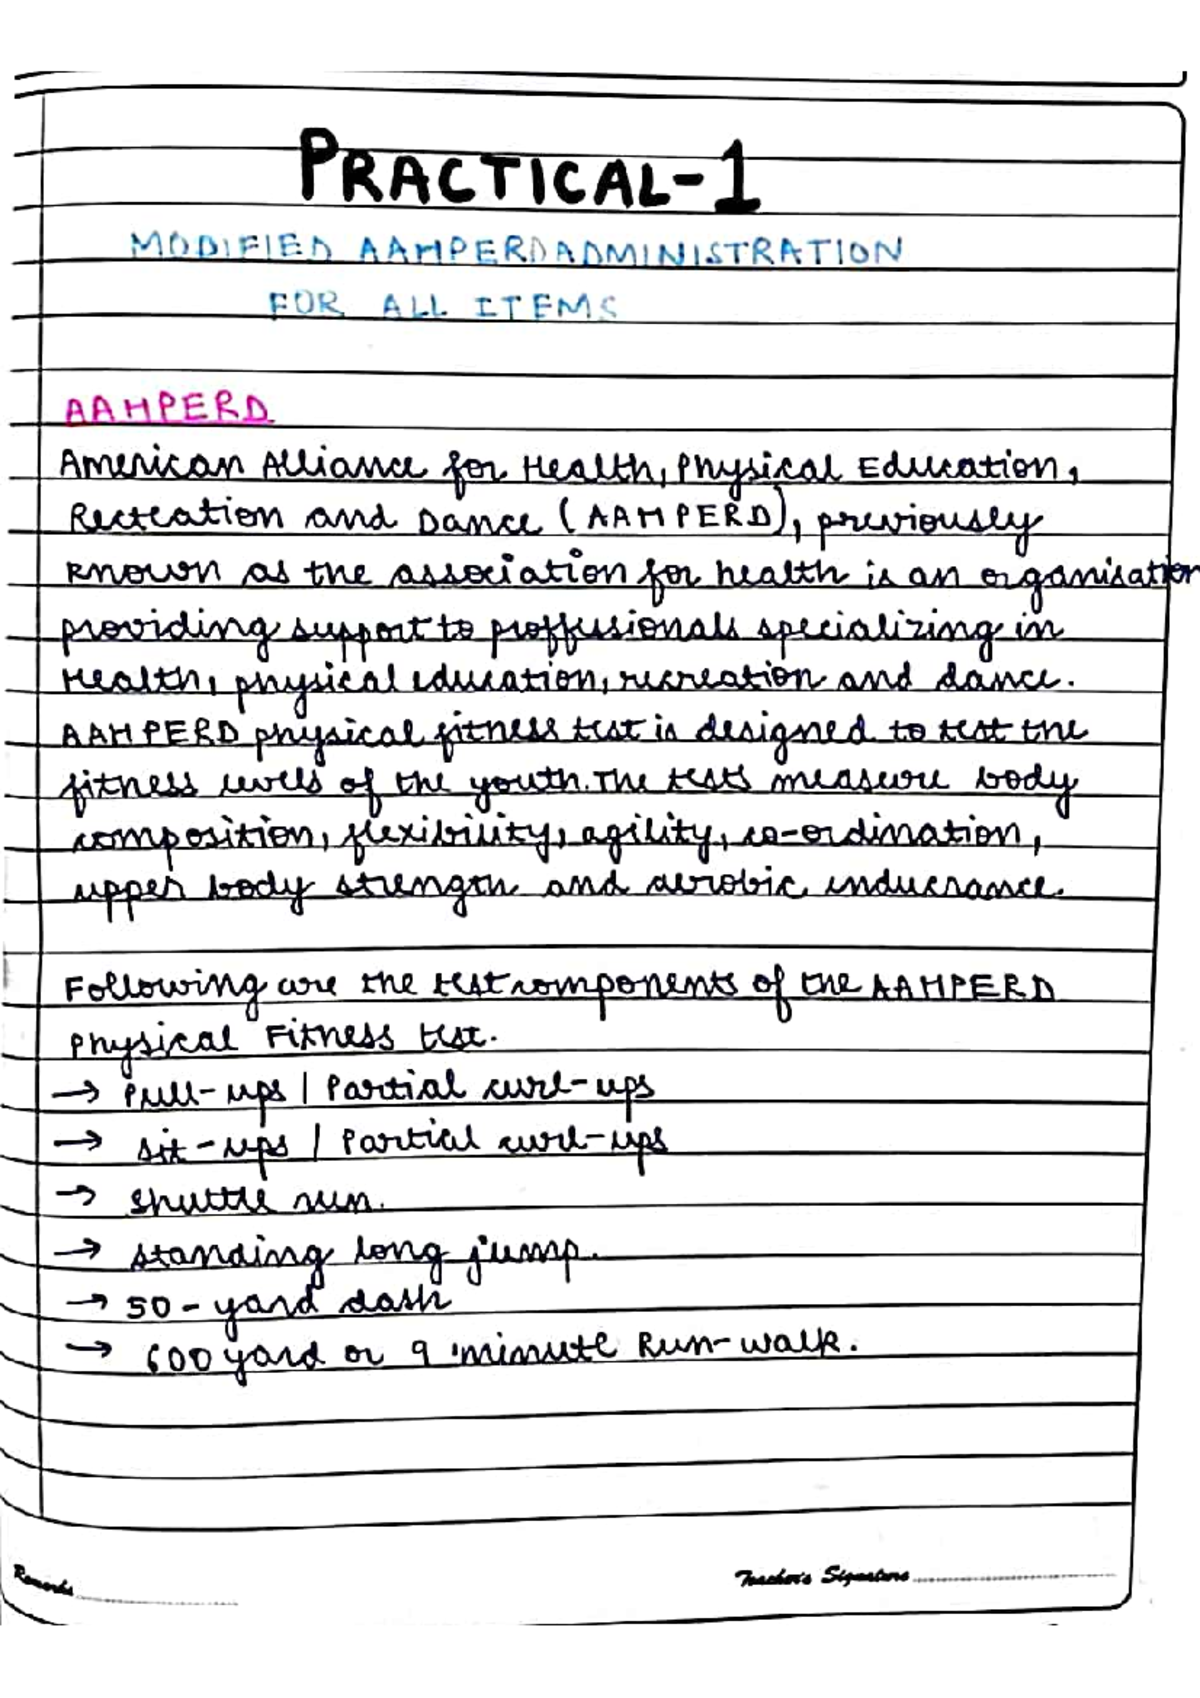 PRACTICAL-1
MODIFIED AAHPERD ADMINISTRATION
FOR ALL ITEMS
AAHPERD
American Alliance for Health, Physical Education,
Recreation and Dance (AAHPERD), previously
known as the association for health is an organisation
providing support to proffessionals specializing in
Health, physical education, recreation and dance.
AAHPERD physical fitness test is designed to test the
fitness levels of the youth. The tests measure body
composition, flexibility, agility, co-ordination,
upper body strength and aerobic endurance.
Following are the test components of the AAHPERD
Physical Fitness test.
→ Pull-ups | Partial curl-ups
→ sit-ups | Partial curl-ups
→ shuttle run.
→ standing long jump.
→ 50-yard dash
→ 600 yard or 9 minute Run-walk.
Remarks
Teacher's Signature